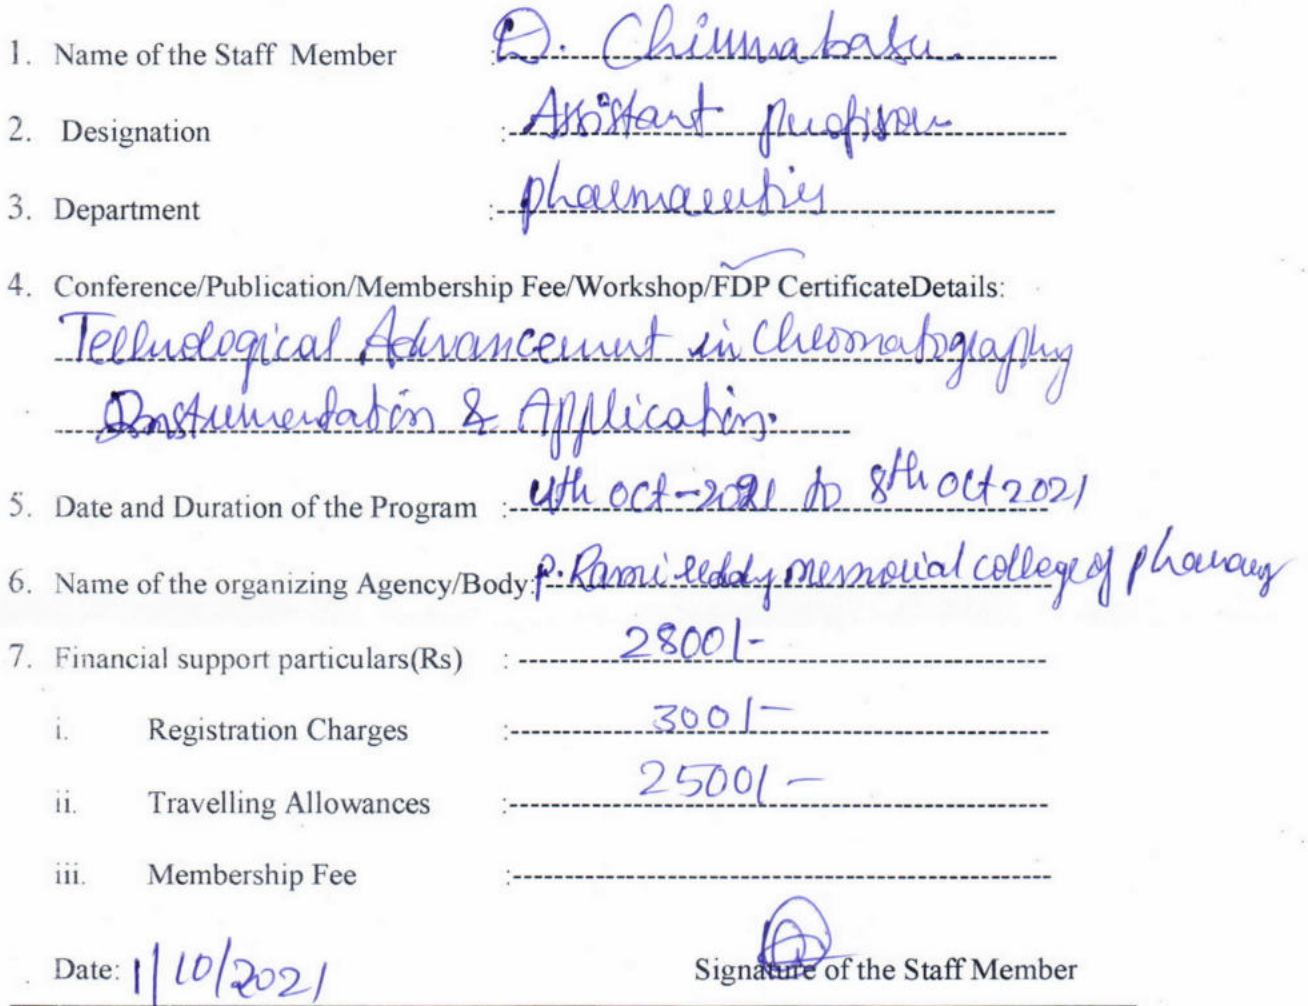 1. Name of the Staff Member : D. Chinnababu.
2. Designation : Assistant professor
3. Department : pharmaceutics
4. Conference/Publication/Membership Fee/Workshop/FDP CertificateDetails:
Technological Advancement in Chromatography
Instrumentation & Application.
5. Date and Duration of the Program : 4th oct-2021 to 8th oct 2021
6. Name of the organizing Agency/Body: P. Rami reddy memorial college of pharmacy
7. Financial support particulars(Rs) : 2800/-
i. Registration Charges : 300/-
ii. Travelling Allowances : 2500/-
iii. Membership Fee :
Date: 1/10/2021 Signature of the Staff Member